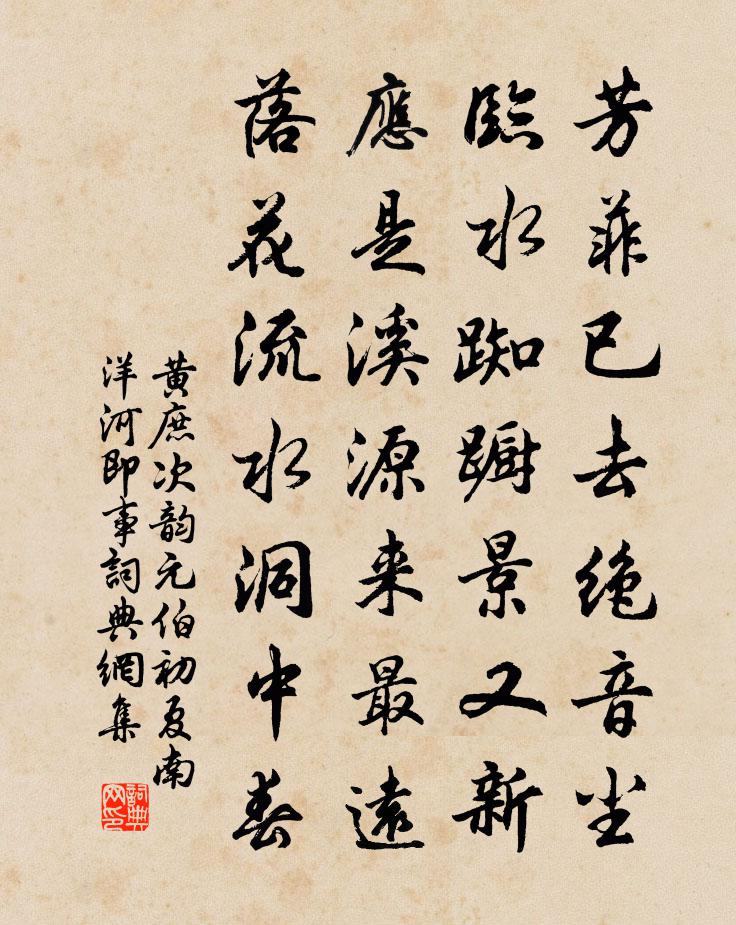 芳菲已去絶音尘
臨水踟蹰景又新
應是溪源来最遠
落花流水洞中春
黄庶次韵元伯初夏南
洋河即事詞典網集
詞典
网印